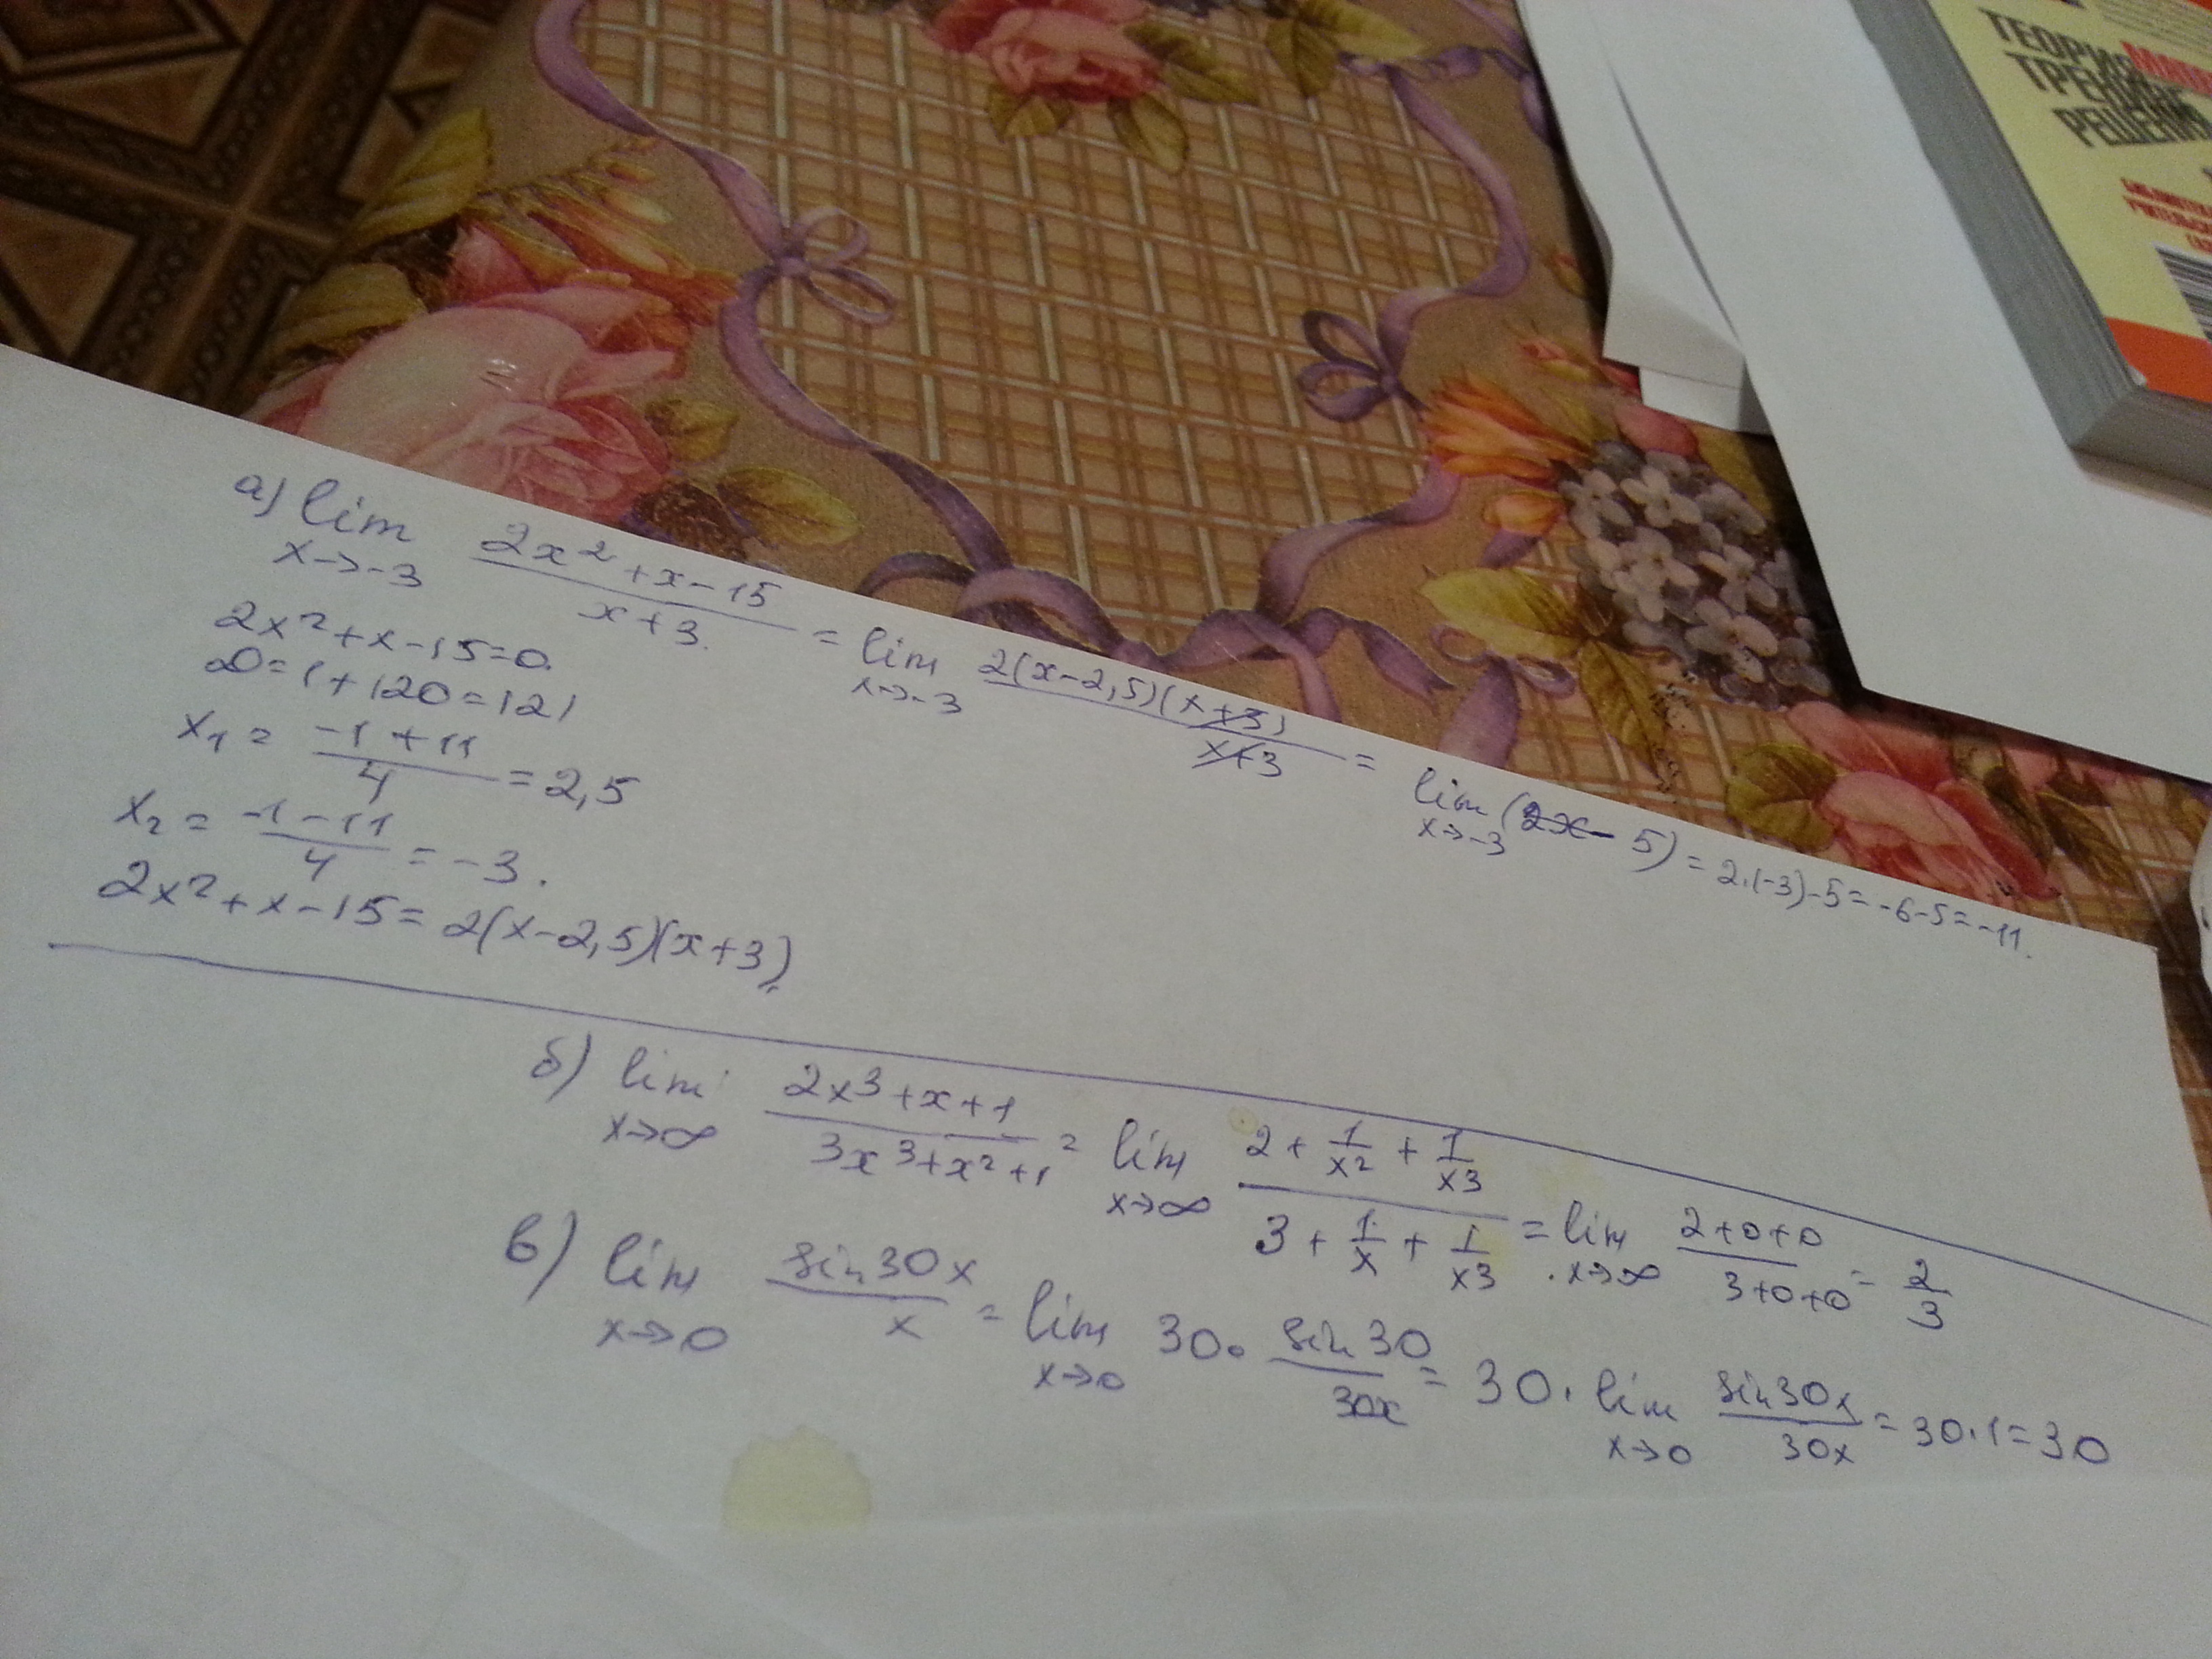 ТЕОРИЯ
ТРЕНИ
РЕШЕНИ
а) lim x→-3 (2x²+x-15)/(x+3.) = lim x→-3 2(x-2,5)(x+3)/(x+3) = lim x→-3 (2x-5) = 2·(-3)-5=-6-5=-11.
2x²+x-15=0.
D=1+120=121
x₁ = (-1+11)/4 = 2,5
x₂ = (-1-11)/4 = -3.
2x²+x-15=2(x-2,5)(x+3)
б) lim x→∞ (2x³+x+1)/(3x³+x²+1) = lim x→∞ (2+1/x²+1/x³)/(3+1/x+1/x³) = lim x→∞ (2+0+0)/(3+0+0) = 2/3
в) lim x→0 sin30x/x = lim x→0 30· sin30/30x = 30· lim x→0 sin30x/30x = 30·1=30